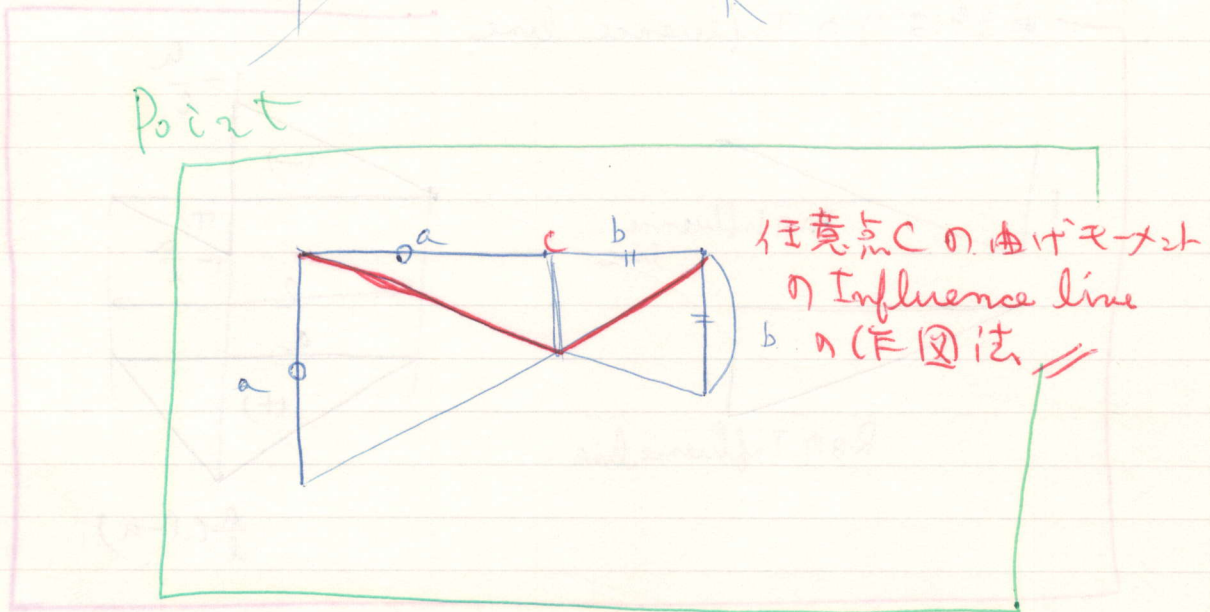 Point
a c b
任意点Cの曲げモーメント
の Influence line
a b の作図法